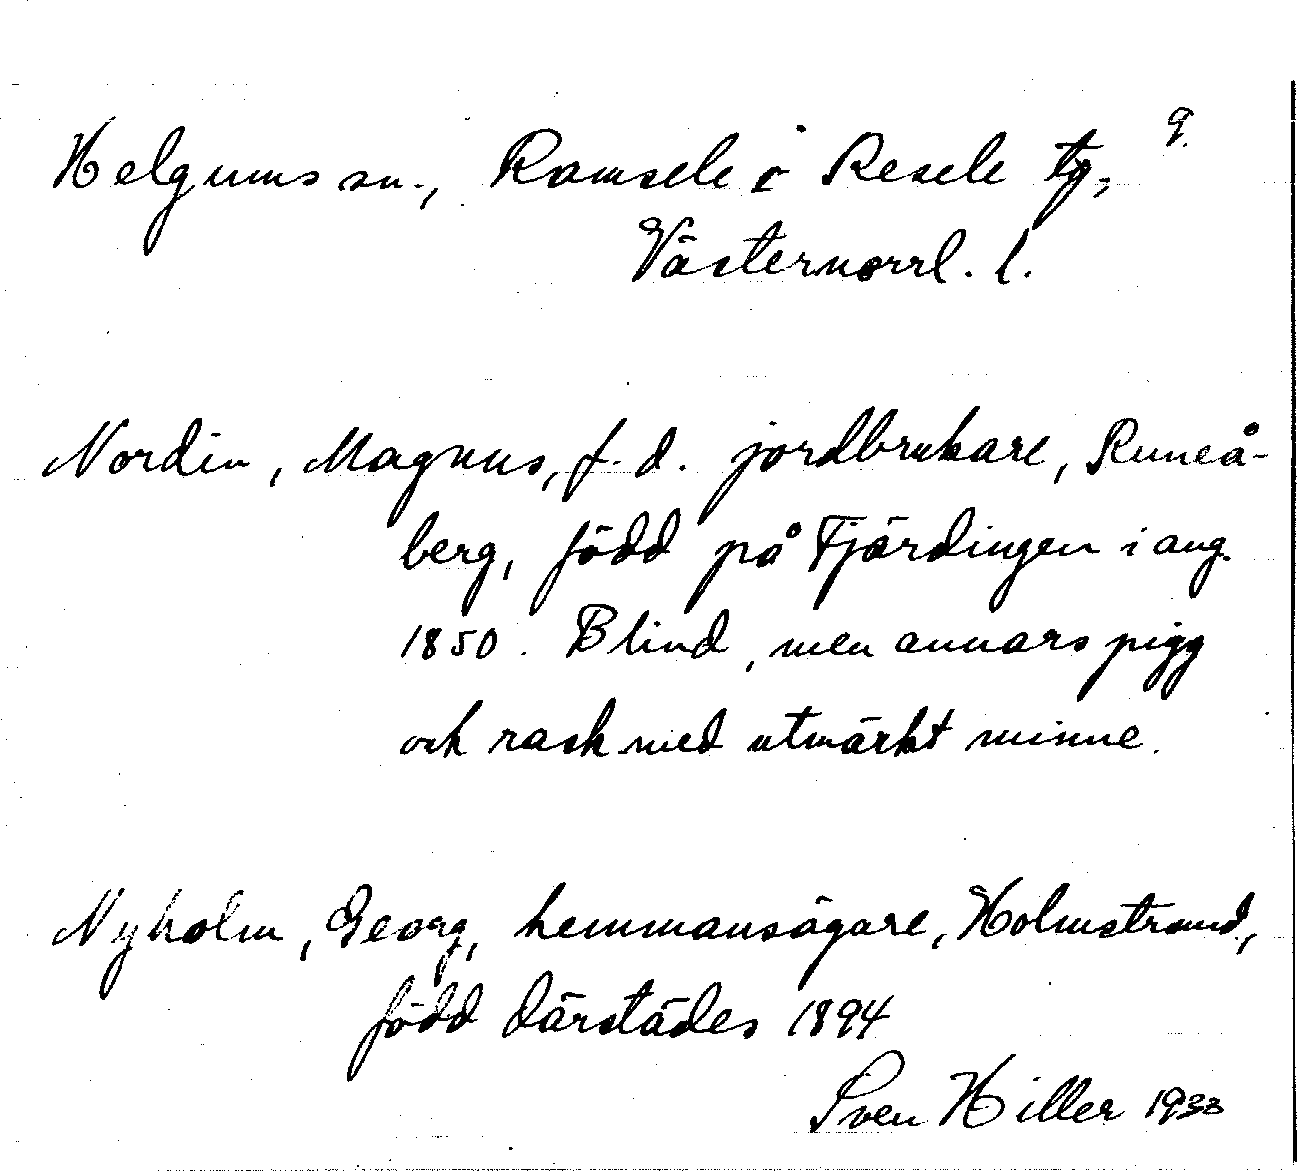 9.
Helgums sn., Ramsele o Resele tg,
Västernorrl. l.
Nordin, Magnus, f. d. jordbrukare, Runeå-
berg, född på Fjärdingen i aug.
1850. Blind, men annars pigg
och rask med utmärkt minne.
Nyholm, Georg, hemmansägare, Holmstrand,
född därstädes 1894
Sven Hiller 1933